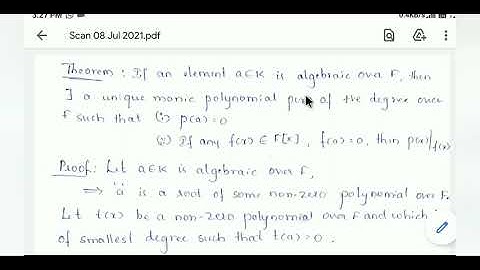 3:27 PM
0.4KB/s
Scan 08 Jul 2021.pdf
Theorem : If an element a∈K is algebraic over F, then
∃ a unique monic polynomial p(x) of the degree over
F such that (i) p(a)=0
(ii) If any f(x) ∈ F[x], f(a)=0, then p(x)/f(x)
Proof: Let a∈K is algebraic over F,
⇒ 'a' is a root of some non-zero polynomial over F.
Let t(x) be a non-zero polynomial over F and which is
of smallest degree such that t(a)=0.